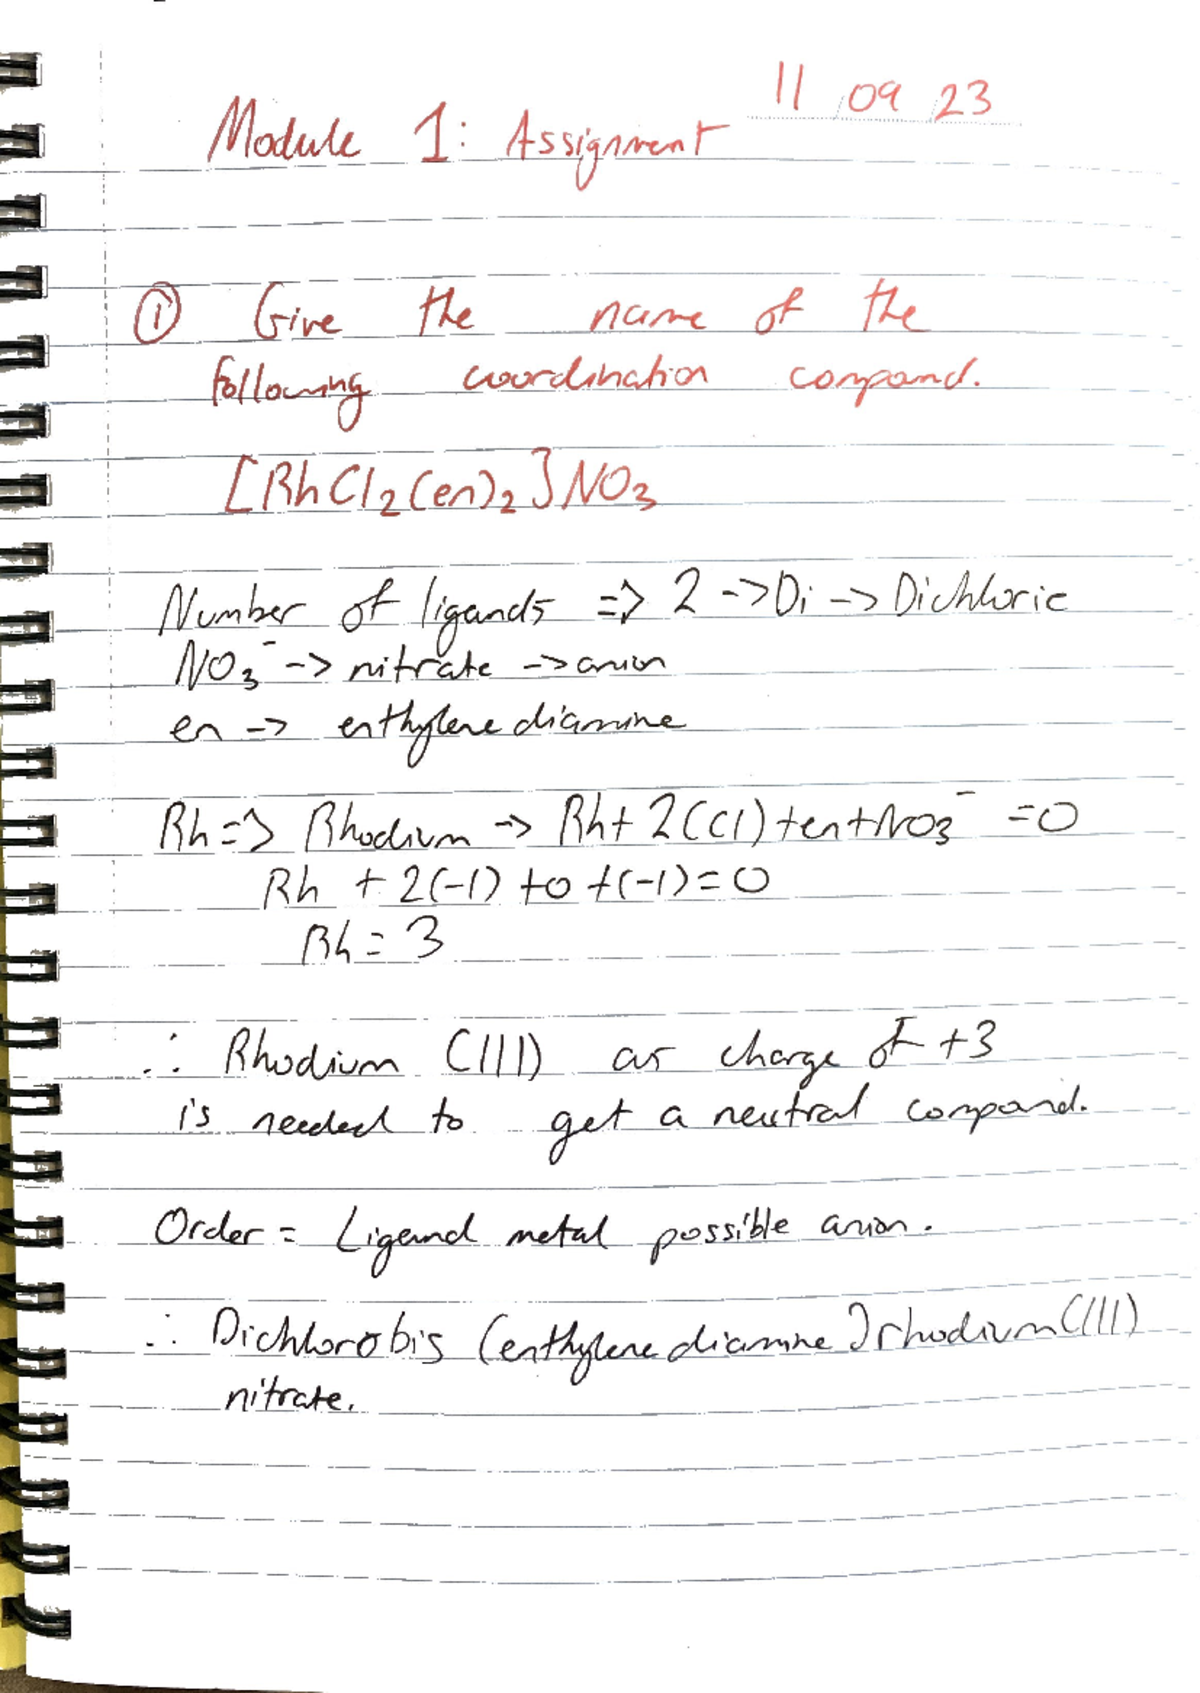 11 09 23
Module 1: Assignment
① Give the name of the
following coordination compound.
[RhCl₂(en)₂]NO₃
Number of ligands => 2 -> Di -> Dichloric
NO₃⁻ -> nitrate -> anion
en -> enthylenediamine
Rh => Rhodium -> Rh + 2(Cl) + en + NO₃⁻ = 0
Rh + 2(-1) + 0 + (-1) = 0
Rh = 3
∴ Rhodium (III) as charge of +3
is needed to get a neutral compound.
Order = Ligand metal possible anion.
∴ Dichlorobis (enthylenediamine) rhodium (III)
nitrate.